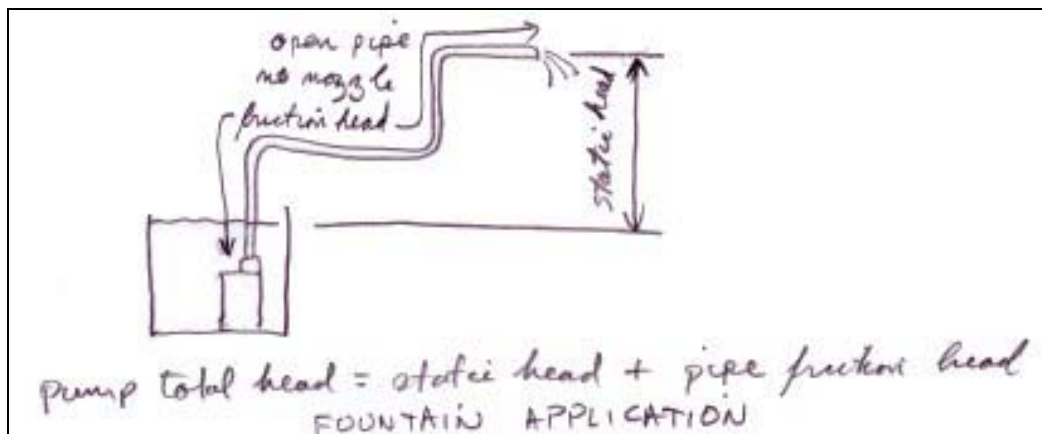 open pipe
no nozzle
friction head
static head
pump total head = static head + pipe friction head
FOUNTAIN APPLICATION